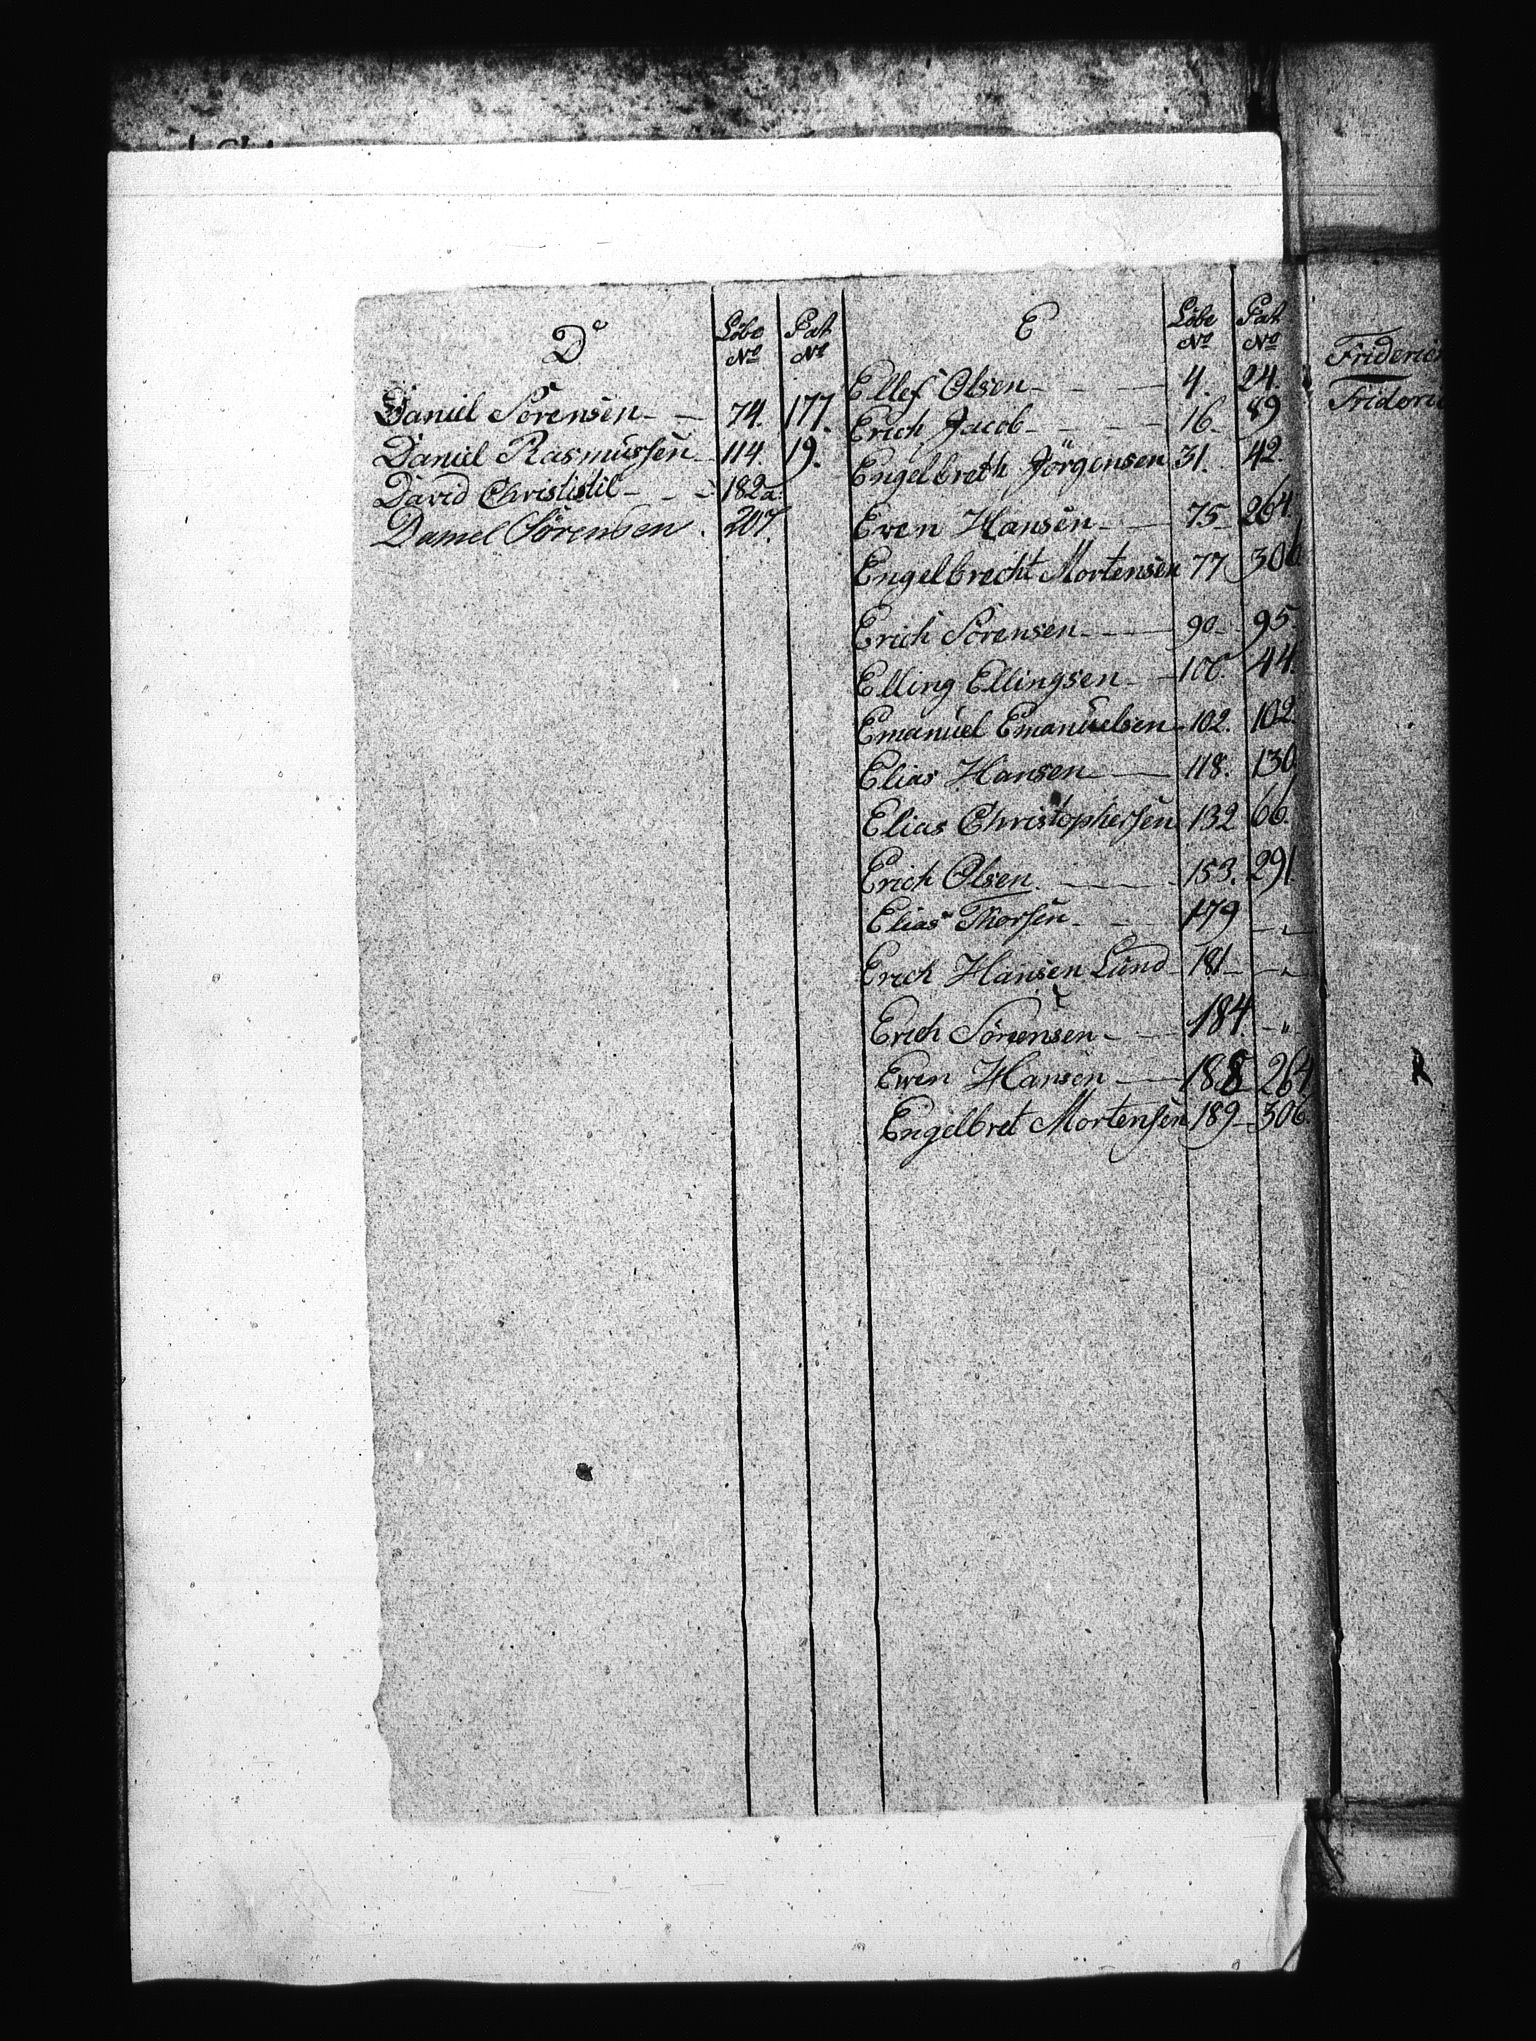 D
Löbe No
Pat No
Daniel Sörensen 74. 177.
Daniel Rasmussen 114. 19.
David Christistil 182a.
Daniel Sörensen 207.
E
Löbe No
Pat No
Ellef Olsen 4. 24.
Erich Jacob 16 89
Engelbreth Jörgensen 31. 42.
Even Hansen 75 264.
Engelbrecht Mortensen 77 306
Erich Sörensen 90 95
Elling Ellingsen 100. 44.
Emanuel Emanuelsen 102. 102.
Elias Hansen 118. 130
Elias Christophersen 132 66.
Erich Olsen 153. 291.
Elias Thorsen 179 "
Erich Hansen Lund 181 "
Erich Sörensen 184 "
Even Hansen 188 264
Engelbret Mortensen 189 306.
Friderich
Frideri